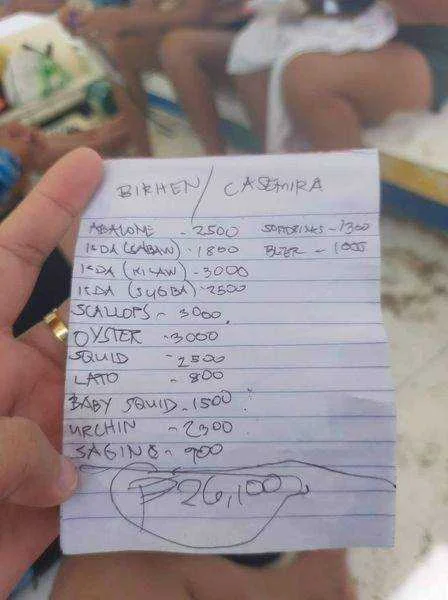 BIRHEN / CASEMIRA
ABALONE - 2500 SOFDRINKS - 1300
ISDA (SABAW) - 1800 BEER - 1000
ISDA (KILAW) - 3000
ISDA (SUGBA) - 2500
SCALLOPS - 3000
OYSTER - 3000
SQUID - 2500
LATO - 800
BABY SQUID - 1500
URCHIN - 2300
SAGING - 900
₱26,100